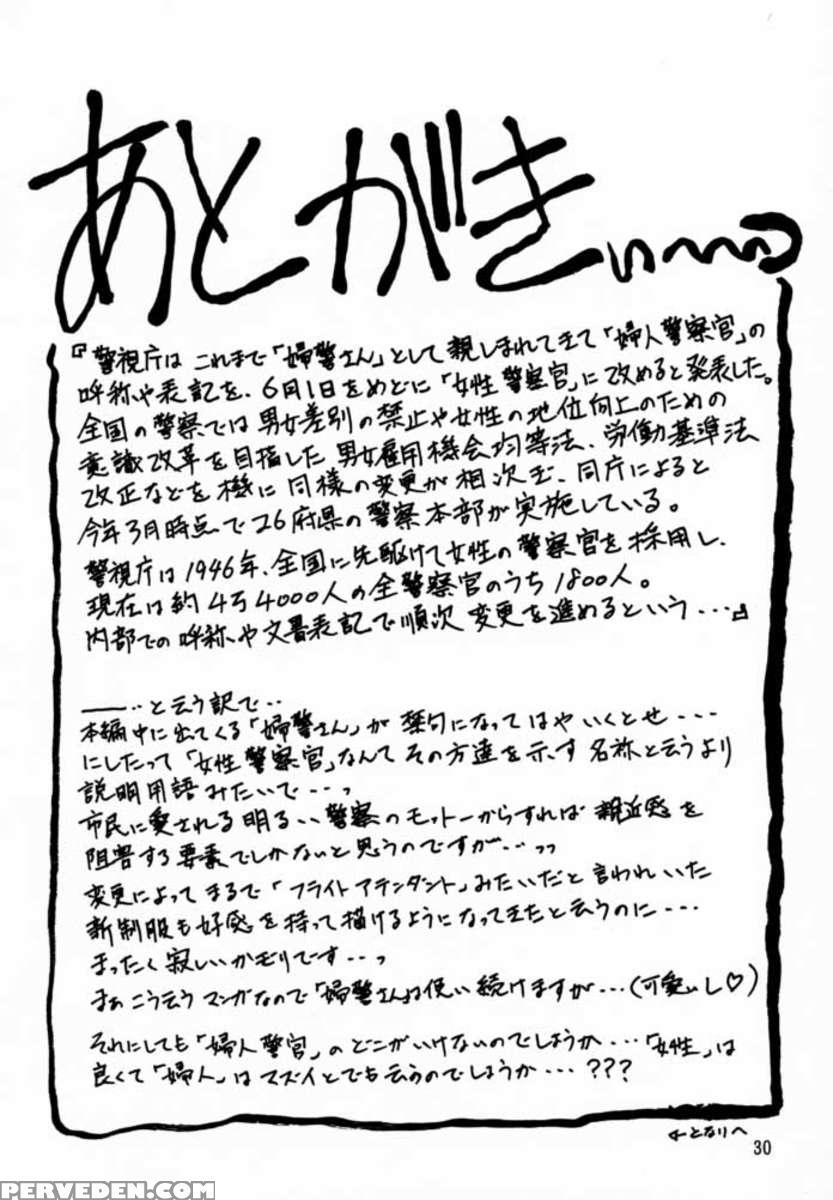 あとがきぃ〜〜〜っ
『警視庁は これまで「婦警さん」として親しまれてきて「婦人警察官」の
呼称や表記を、6月1日をめどに「女性警察官」に改めると発表した。
全国の警察では男女差別の禁止や女性の地位向上のための
意識改革を目指した男女雇用機会均等法、労働基準法
改正などを機に同様の変更が相次ぎ、同庁によると
今年3月時点で26府県の警察本部が実施している。
警視庁は1946年、全国に先駆けて女性の警察官を採用し、
現在は約4万4000人の全警察官のうち1800人。
内部での呼称や文書表記で順次変更を進めるという・・・』
――・・と云う訳で・・
本編中に出てくる「婦警さん」が禁句になってはや いくとせ・・・
にしたって「女性警察官」なんてその方達を示す名称と云うより
説明用語みたいで・・・っ
市民に愛される明るい警察のモットーからすれば親近感を
阻害する要素でしかないと思うのですが・・・っっ
変更によってまるで「フライトアテンダント」みたいだと言われいた
新制服も好感を持って描けるようになってきたと云うのに・・・
まったく寂しいかぎりです・・・っ
まぁこう云うマンガなので「婦警さん」は使い続けますが・・・(可愛いし♡)
それにしても「婦人警官」のどこがいけないのでしょうか・・・「女性」は
良くて「婦人」はマズイとでも云うのでしょうか・・・???
←となりへ
30
PERVEDEN.COM